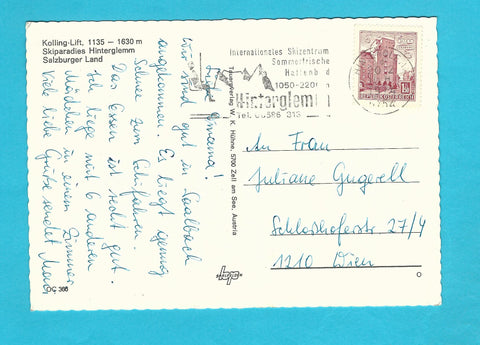 Kolling-Lift, 1135 – 1630 m
Skiparadies Hinterglemm
Salzburger Land
Internationales Skizentrum
Sommerfrische
Hallenb d
1050-220
Hinterglem
Tel.
REPUBLIK ÖSTERREICH
Liebe Omama!
Wir sind gut in Saalbach
angekommen. Es liegt genug
Schnee zum Schifahren.
Das Essen ist recht gut.
Ich liege mit 6 anderen
Mädchen in einem Zimmer
Viele liebe Grüße sendet
Tauernverlag W. K. Hühne, 5700 Zell am See, Austria
An Frau
Juliane Gugerell
Schloßhoferstr 27/4
1210 Wien
OC 366